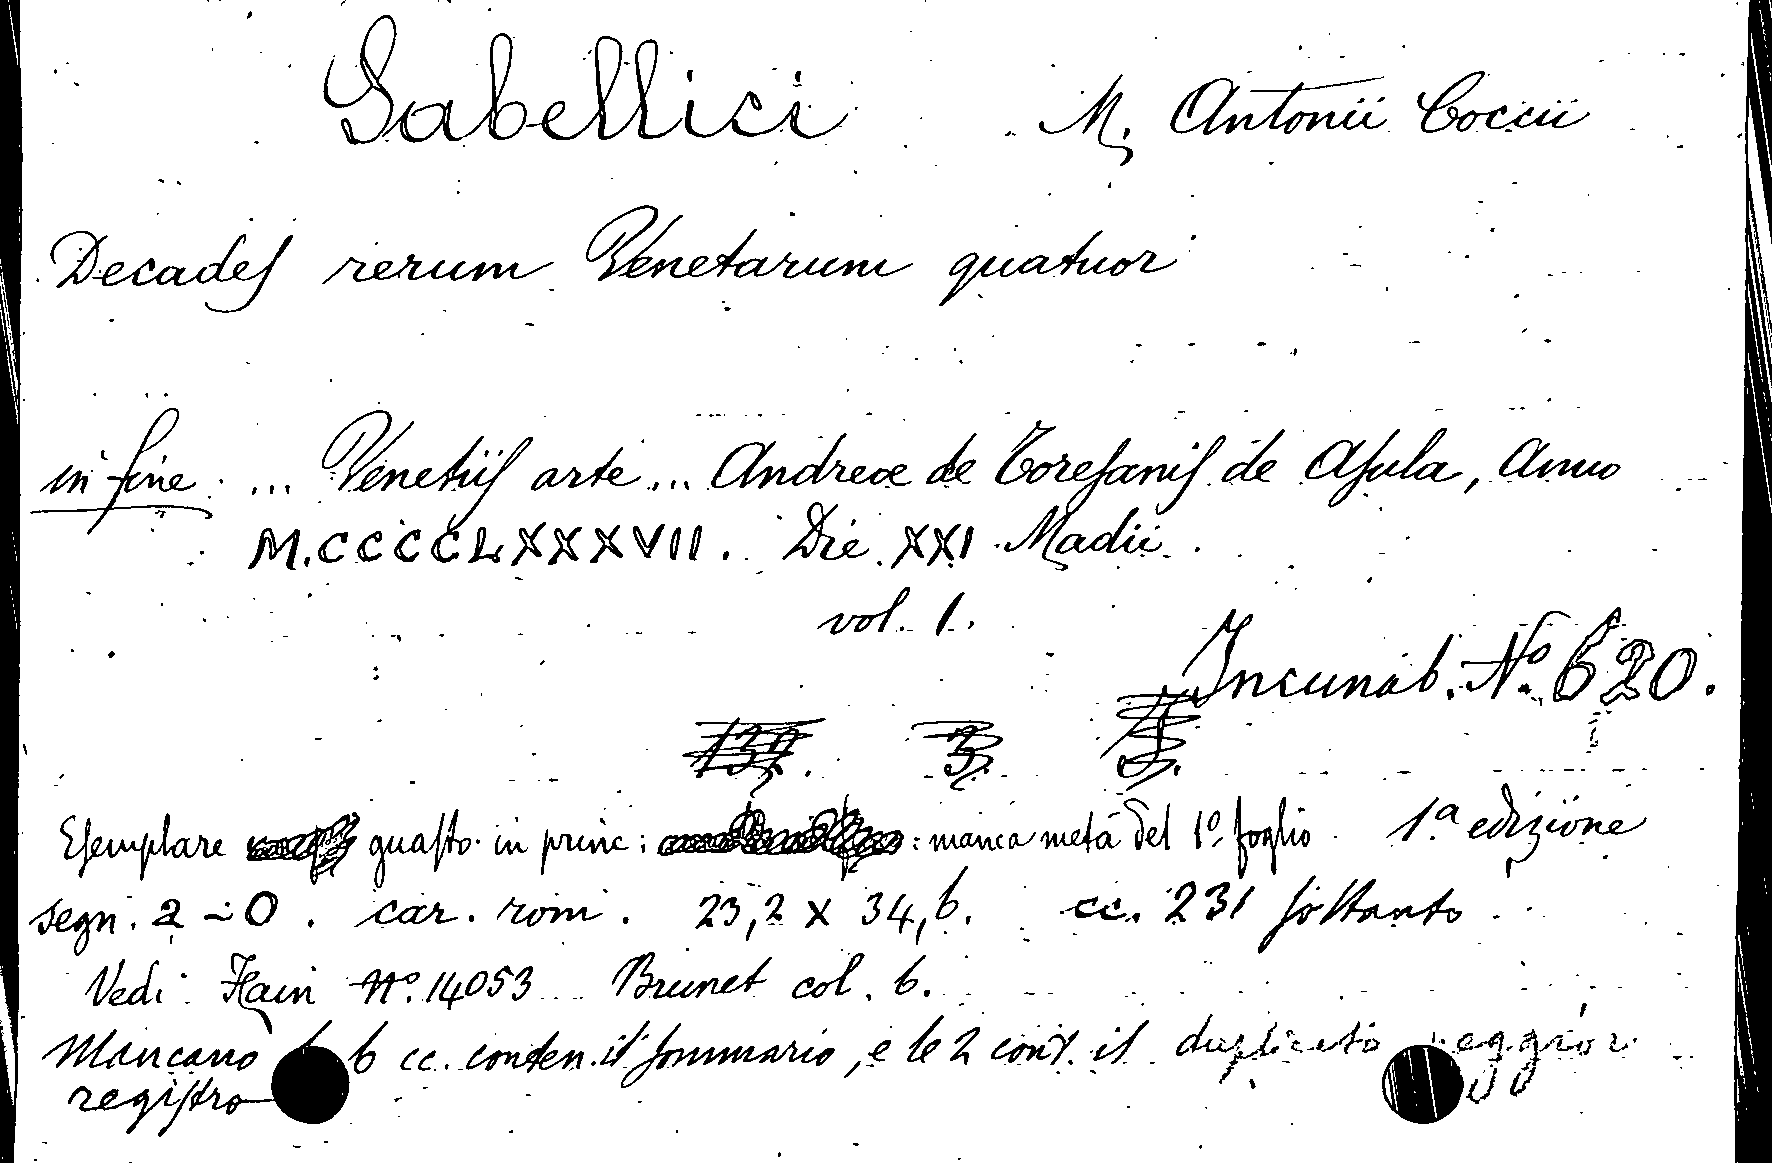 Sabellici M. Antonii Coccii
Decades rerum Venetarum quatuor
in fine ... Venetiis arte ... Andreæ de Toresanis de Asula, Anno
M.CCCCLXXXVII. Die XXI Madii.
vol. 1.
Incunab. Nº 620.
137. 3. 5.
Esemplare guasto in princ: : manca metà del 1º foglio 1ª edizione
segn. a - o. car. rom. 23,2 x 34,6. cc. 231 soltanto
Vedi Hain Nº. 14053 Brunet col. 6.
Mancano 6 cc. conten. il sommario, e le 2 cont. il duplicato
registro